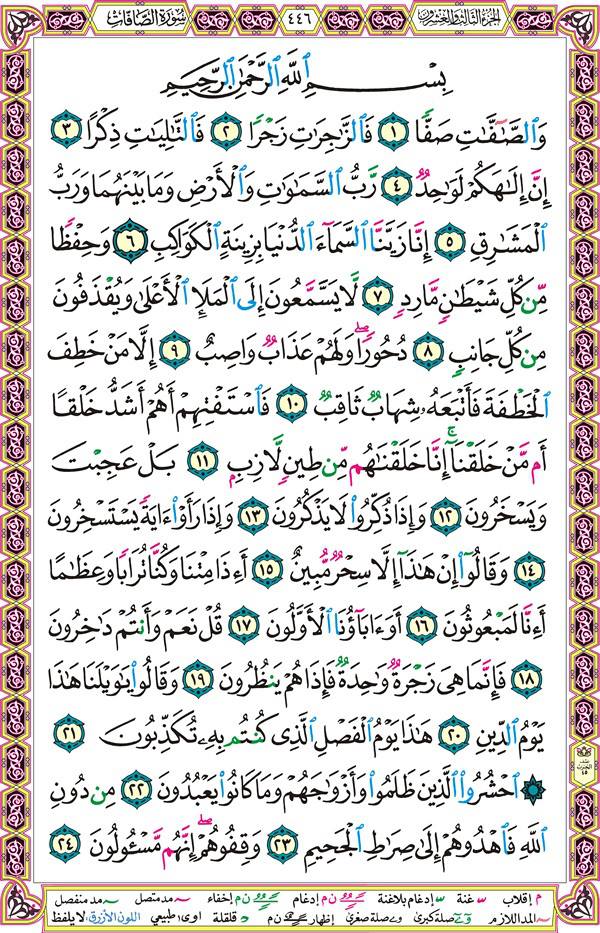 الجزء الثالث والعشرون ٤٤٦ سورة الصافات
بِسْمِ ٱللَّهِ ٱلرَّحْمَٰنِ ٱلرَّحِيمِ
وَٱلصَّٰٓفَّٰتِ صَفًّا ١ فَٱلزَّٰجِرَٰتِ زَجْرًا ٢ فَٱلتَّٰلِيَٰتِ ذِكْرًا ٣
إِنَّ إِلَٰهَكُمْ لَوَٰحِدٌ ٤ رَّبُّ ٱلسَّمَٰوَٰتِ وَٱلْأَرْضِ وَمَا بَيْنَهُمَا وَرَبُّ
ٱلْمَشَٰرِقِ ٥ إِنَّا زَيَّنَّا ٱلسَّمَآءَ ٱلدُّنْيَا بِزِينَةٍ ٱلْكَوَاكِبِ ٦ وَحِفْظًا
مِّن كُلِّ شَيْطَٰنٍ مَّارِدٍ ٧ لَّا يَسَّمَّعُونَ إِلَى ٱلْمَلَإِ ٱلْأَعْلَىٰ وَيُقْذَفُونَ
مِن كُلِّ جَانِبٍ ٨ دُحُورًا ۖ وَلَهُمْ عَذَابٌ وَاصِبٌ ٩ إِلَّا مَنْ خَطِفَ
ٱلْخَطْفَةَ فَأَتْبَعَهُۥ شِهَابٌ ثَاقِبٌ ١٠ فَٱسْتَفْتِهِمْ أَهُمْ أَشَدُّ خَلْقًا
أَم مَّنْ خَلَقْنَآ ۚ إِنَّا خَلَقْنَٰهُم مِّن طِينٍ لَّازِبٍ ١١ بَلْ عَجِبْتَ
وَيَسْخَرُونَ ١٢ وَإِذَا ذُكِّرُوا۟ لَا يَذْكُرُونَ ١٣ وَإِذَا رَأَوْا۟ ءَايَةً يَسْتَسْخِرُونَ
١٤ وَقَالُوٓا۟ إِنْ هَٰذَآ إِلَّا سِحْرٌ مُّبِينٌ ١٥ أَءِذَا مِتْنَا وَكُنَّا تُرَابًا وَعِظَٰمًا
أَءِنَّا لَمَبْعُوثُونَ ١٦ أَوَءَابَآؤُنَا ٱلْأَوَّلُونَ ١٧ قُلْ نَعَمْ وَأَنتُمْ دَٰخِرُونَ
١٨ فَإِنَّمَا هِىَ زَجْرَةٌ وَٰحِدَةٌ فَإِذَا هُمْ يَنظُرُونَ ١٩ وَقَالُوا۟ يَٰوَيْلَنَا هَٰذَا
يَوْمُ ٱلدِّينِ ٢٠ هَٰذَا يَوْمُ ٱلْفَصْلِ ٱلَّذِى كُنتُم بِهِۦ تُكَذِّبُونَ ٢١
۞ ٱحْشُرُوا۟ ٱلَّذِينَ ظَلَمُوا۟ وَأَزْوَٰجَهُمْ وَمَا كَانُوا۟ يَعْبُدُونَ ٢٢ مِن دُونِ
ٱللَّهِ فَٱهْدُوهُمْ إِلَىٰ صِرَٰطِ ٱلْجَحِيمِ ٢٣ وَقِفُوهُمْ ۖ إِنَّهُم مَّسْـُٔولُونَ ٢٤
نصف الحزب ٤٥
م إقلاب غنة إدغام بلاغنة ن م إدغام ن م إخفاء مد متصل مد منفصل
المد اللازم صلة كبرى صلة صغرى إظهار ن م قلقلة اوى طبيعي اللون الأزرق لا يلفظ